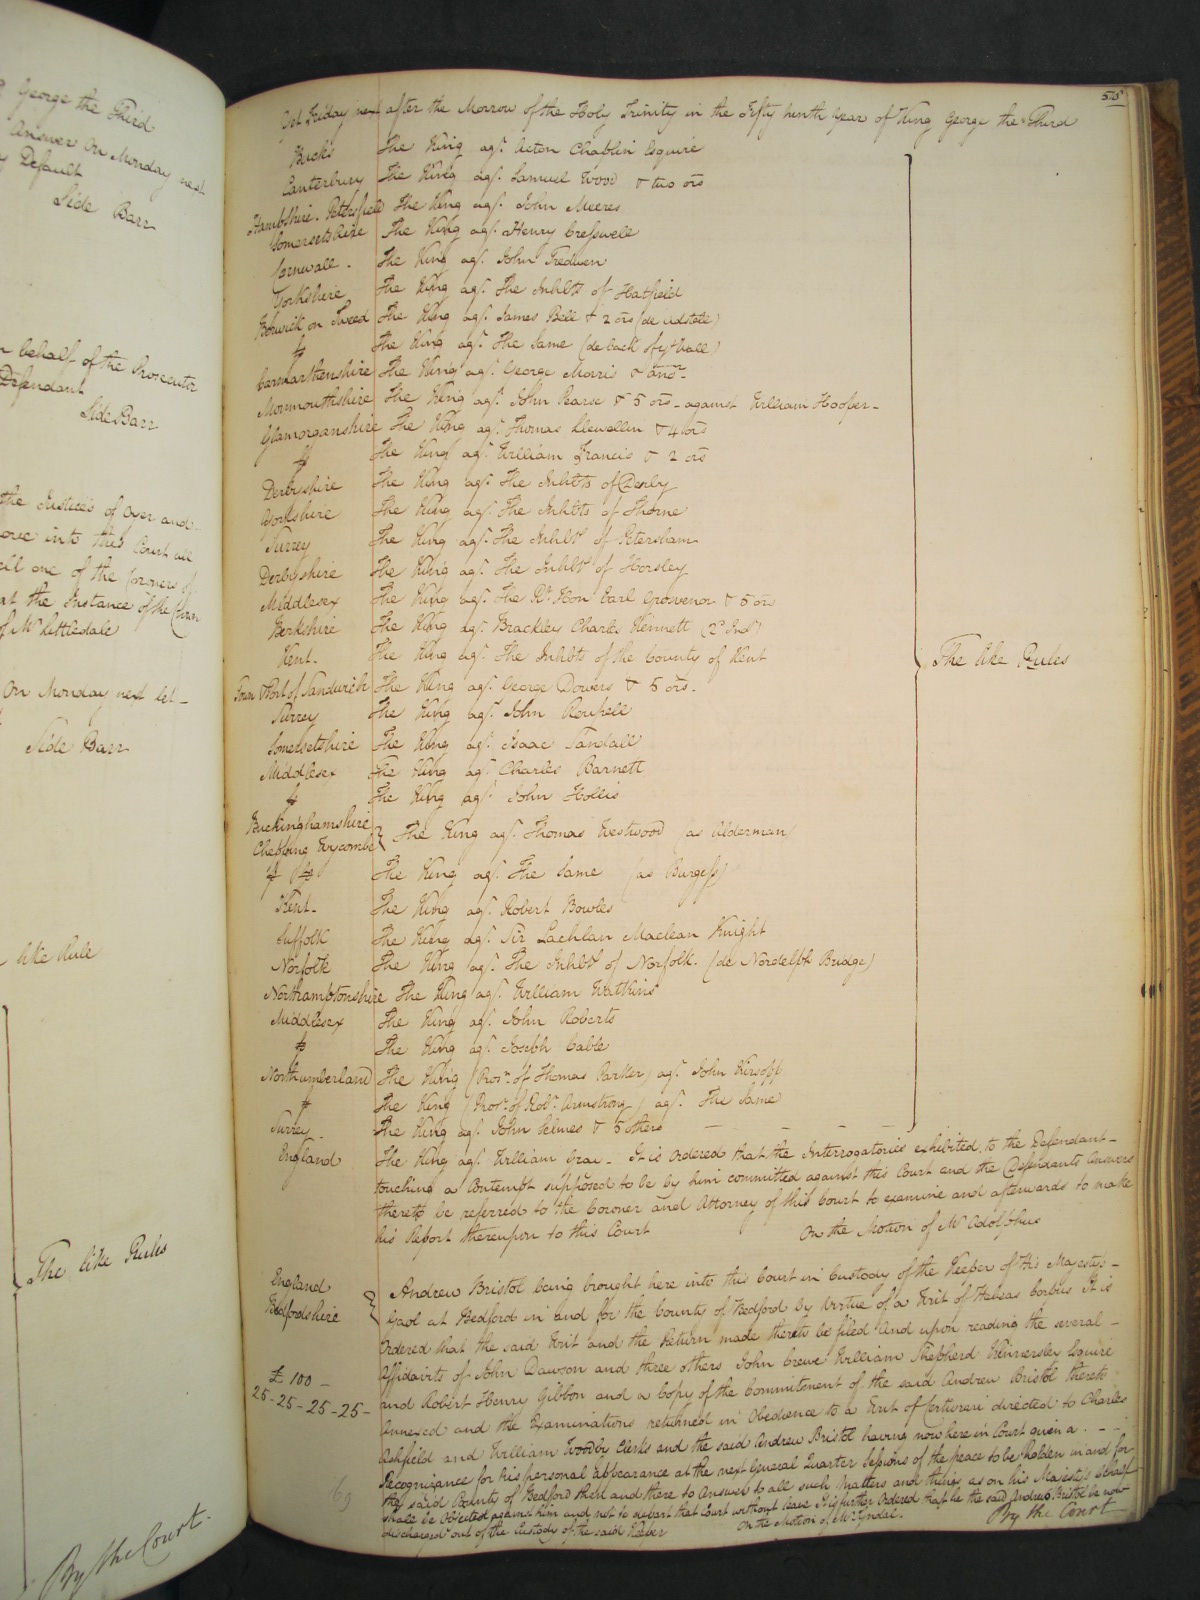 George the Third
Answer On Monday next
Default
Side Barr
behalf of the Prosecutor
Defendant
Side Barr
the Justices of Oyer and
into this Court all
one of the Coroners of
at the Instance of the
of Mr Littledale
On Monday next let
Side Barr
like Rule
The like Rules
By the Court.
55
Yet Friday next after the Morrow of the Holy Trinity in the Fifty ninth Year of King George the Third
Bucks The King agt. Acton Chaplin Esquire
Canterbury The King agt. Samuel Wood & two ors
Hampshire. Petersfield The King agt. John Meeres
Somersetshire The King agt. Henry Cresswell
Cornwall. The King agt. John Tredwen
Yorkshire The King agt. The Inhbts of Hatfield
Berwick on Tweed The King agt. James Bell & 2 ors
The King agt. The Same
Carmarthenshire The King agt. George Morris & anor
Monmouthshire The King agt. John Pearse & 5 ors - against William Hooper -
Glamorganshire The King agt. Thomas Llewellin & 4 ors
The King agt. William Francis & 2 ors
Derbyshire The King agt. The Inhbts of Denby
Yorkshire The King agt. The Inhbts of Thorne
Surrey The King agt. The Inhbts of Petersham
Derbyshire The King agt. The Inhbts of Horsley
Middlesex The King agt. The Rt Hon Earl Grosvenor & 5 ors
Berkshire The King agt. Brackley Charles Kennett (2d Indt)
Kent. The King agt. The Inhbts of the County of Kent
Town & Port of Sandwich The King agt. George Dowers & 5 ors.
Surrey The King agt. John Roupell
Somersetshire The King agt. Isaac Sandall
Middlesex The King agt. Charles Barnett
The King agt. John Hollis
Buckinghamshire
Chepping Wycombe The King agt. Thomas Westwood (as Alderman)
The King agt. The Same (as Burgess)
Kent. The King agt. Robert Bowles
Suffolk The King agt. Sir Lachlan Maclean Knight
Norfolk The King agt. The Inhbts of Norfolk. (de Nordelph Bridge)
Northamptonshire The King agt. William Watkins
Middlesex The King agt. John Roberts
The King agt. Joseph Cable
Northumberland The King (Pros. of Thomas Parker) agt. John Kirsopp
The King (Pros. of Robt. Armstrong) agt. The Same
Surrey The King agt. John Selmes & 5 others
The like Rules
England The King agt. William Gray - It is Ordered that the Interrogatories exhibited to the Defendant
touching a Contempt supposed to be by him committed against this Court and the Defendants Answers
thereto be referred to the Coroner and Attorney of this Court to examine and afterwards to make
his Report thereupon to this Court On the Motion of Mr Adolphus
England
Bedfordshire
Andrew Bristol being brought here into this Court in Custody of the Keeper of His Majestys
Gaol at Bedford in and for the County of Bedford by Virtue of a Writ of Habeas Corpus It is
Ordered that the said Writ and the Return made thereto be filed And upon reading the several
Affidavits of John Dawson and three others John Crewe William Shepherd Kinnersley Esquire
£ 100 -
25-25-25-25-
and Robert Henry Gibbon and a Copy of the Commitment of the said Andrew Bristol thereto
Annexed and the Examinations returned in Obedience to a Writ of Certiorari directed to Charles
Ashfield and William Woodby Clerks and the said Andrew Bristol having now here in Court given a
Recognizance for his personal appearance at the next General Quarter Sessions of the peace to be holden in and for
the said County of Bedford then and there to Answer to all such Matters and things as on his Majestys behalf
shall be Objected against him and not to depart that Court without leave It is further Ordered that he the said Andrew Bristol be now
discharged out of the Custody of the said Keeper On the Motion of Mr Tyndal. By the Court
69